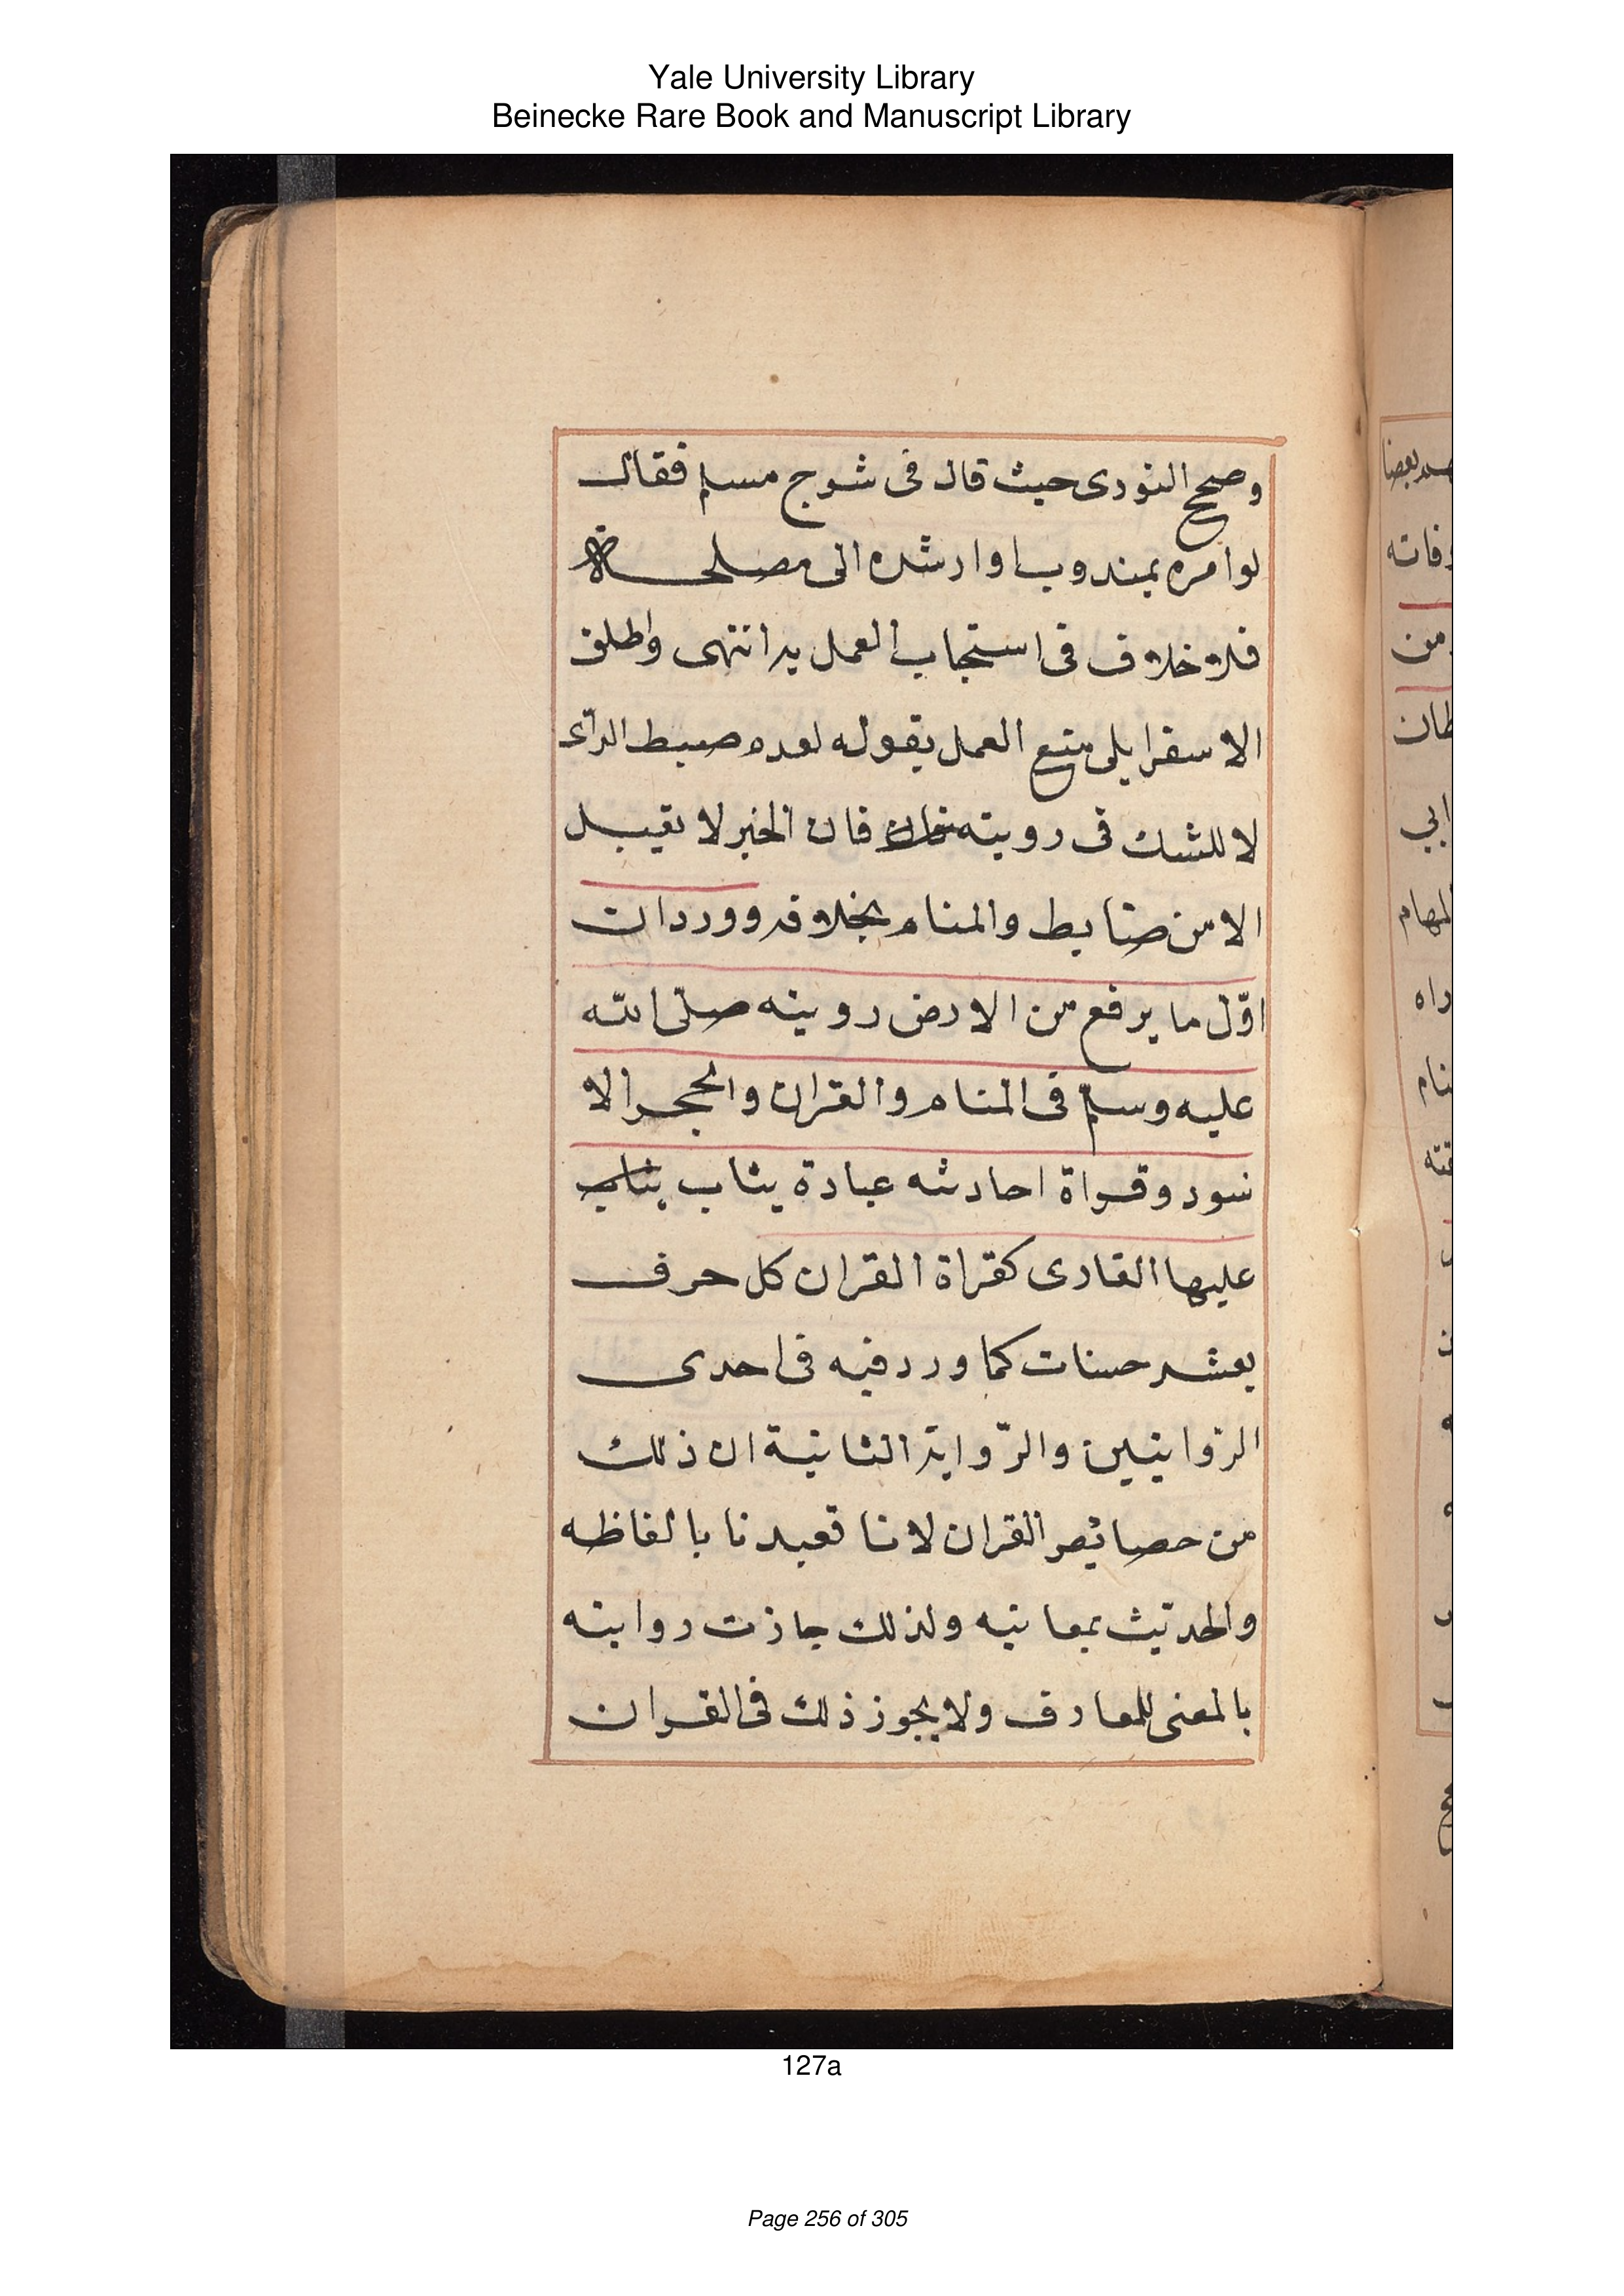 Yale University Library
Beinecke Rare Book and Manuscript Library
وصحح النووى حيث قال فى شرح مسلم فقال
لوامره بمندوب اوارشده الى مصلحة
فلا خلاف فى استحباب العمل به انتهى واطلق
الاسفراينى منع العمل بقوله لعدم ضبط الراى
لا للشك فى رويته فان الخبر لا يقبل
الا من ضابط والمنام بخلافه وورد ان
اوّل ما يرفع من الارض رويته صلى الله
عليه وسلم فى المنام والقران والحجر الا
سود وقراة احاديثه عبادة يثاب
عليها القارى كقراة القران كل حرف
بعشر حسنات كما ورد فيه فى احدى
الروايتين والرّواية الثانية ان ذلك
من خصائص القران لانا تعبدنا بالفاظه
والحديث بمعانيه ولذلك جازت روايته
بالمعنى للعارف ولا يجوز ذلك فى القران
127a
Page 256 of 305